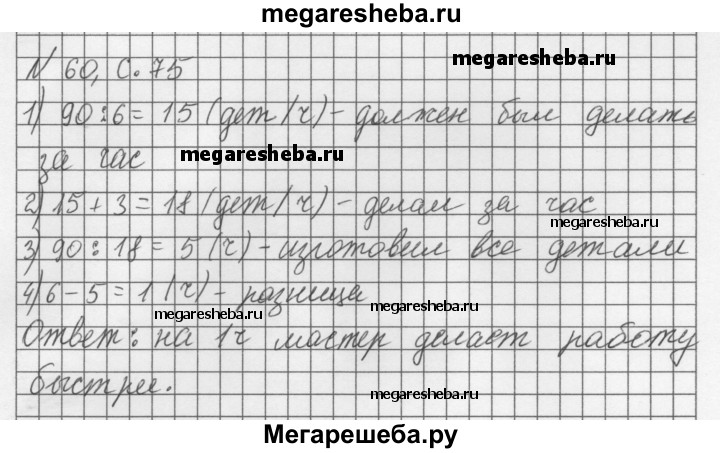 megaresheba.ru
N 60, С. 75
megaresheba.ru
1) 90:6= 15 (дет/ч) - должен был делать
за час
megaresheba.ru
2) 15 + 3 = 18 (дет/ч) - делал за час
megaresheba.ru
3) 90 : 18 = 5 (ч) - изготовил все детали
4) 6 - 5 = 1 (ч) - разница
megaresheba.ru
megaresheba.ru
Ответ: на 1ч мастер делает работу
быстрее.
megaresheba.ru
Мегарешеба.ру